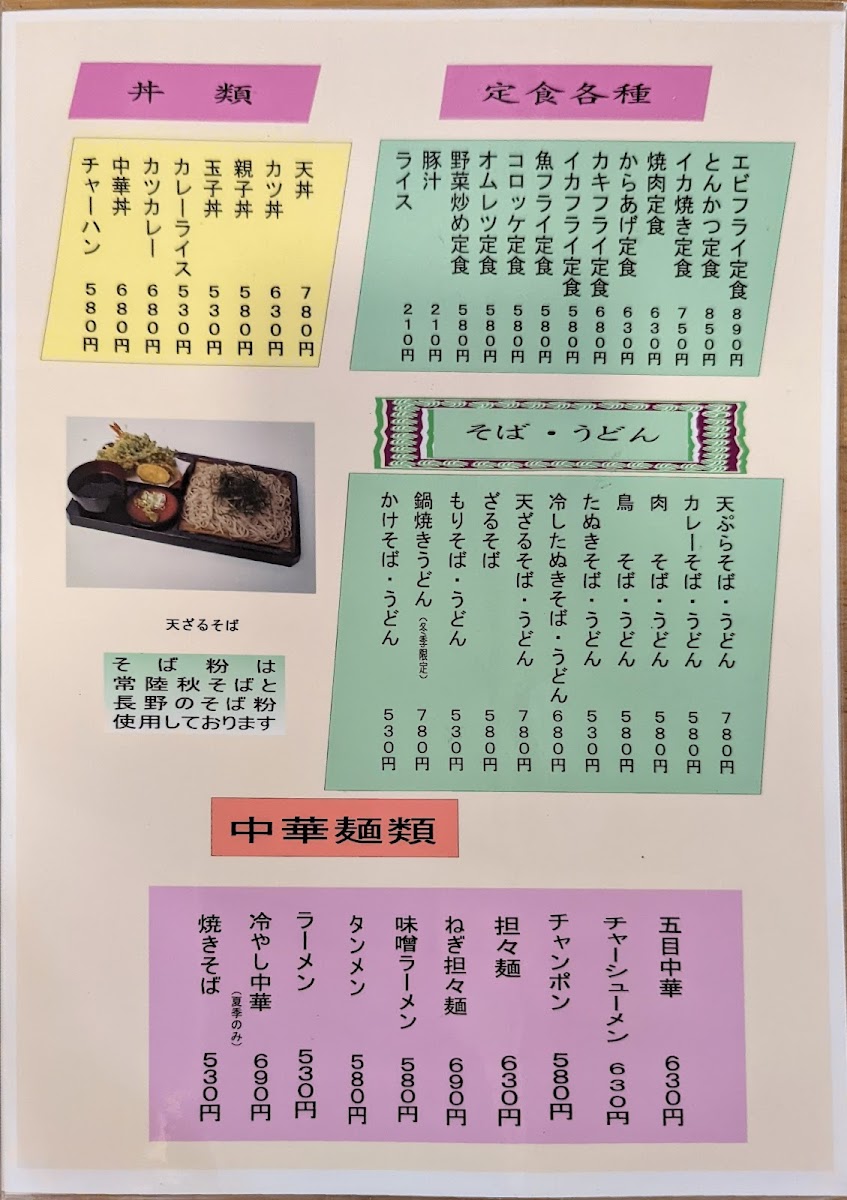 定食各種
エビフライ定食 890円
とんかつ定食 850円
イカ焼き定食 750円
焼肉定食 630円
からあげ定食 630円
カキフライ定食 680円
イカフライ定食 580円
魚フライ定食 580円
コロッケ定食 580円
オムレツ定食 580円
野菜炒め定食 580円
豚汁 210円
ライス 210円
丼 類
天丼 780円
カツ丼 630円
親子丼 580円
玉子丼 530円
カレーライス 530円
カツカレー 680円
中華丼 680円
チャーハン 580円
そば・うどん
天ぷらそば・うどん 780円
カレーそば・うどん 580円
肉 そば・うどん 580円
鳥 そば・うどん 580円
たぬきそば・うどん 530円
冷したぬきそば・うどん 680円
天ざるそば・うどん 780円
ざるそば 580円
もりそば・うどん 530円
鍋焼きうどん(冬季限定) 780円
かけそば・うどん 530円
天ざるそば
そば粉は
常陸秋そばと
長野のそば粉
使用しております
中華麺類
五目中華 630円
チャーシューメン 630円
チャンポン 580円
担々麺 630円
ねぎ担々麺 690円
味噌ラーメン 580円
タンメン 580円
ラーメン 530円
冷やし中華(夏季のみ) 690円
焼きそば 530円